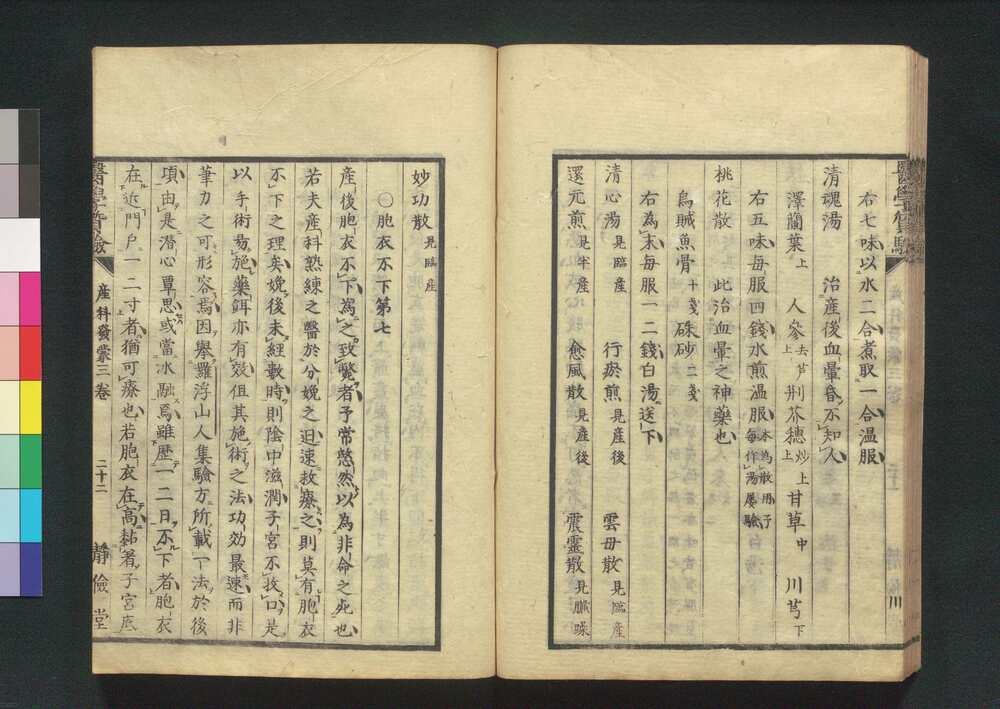 右七味以水二合煮取一合温服
清魂湯　治産後血暈昏不知人
澤蘭葉上　人參去芦上　荆芥穂炒上　甘草中　川芎下
右五味毎服四錢水煎温服本為散用予毎作湯屡驗
桃花散　此治血暈之神藥也
烏賊魚骨十戔　硃砂二戔
右為末毎服一二錢白湯送下
清心湯見臨産　行瘀煎見産後　雲母散見臨産
還元煎見半産　愈風散見産後　震靈散見臓躁
妙功散見臨産
〇胞衣不下第七
産後胞衣不下為之致斃者予常愁然以為非命之死也
若夫産科熟練之醫於分娩之迅速救療之則莫有胞衣
不下之理矣娩後未經數時則陰中滋潤子宮不收口是
以手術易施藥餌亦有效但其施術之法功効最速而非
筆力之可形容焉因舉羅浮山人集驗方所載一法於後
項由是潛心覃思或當冰融焉雖歴一二日不下者胞衣
在近門戸一二寸者猶可療也若胞衣在高黏著子宮底
産科發蒙三卷
二十二
靜儉堂